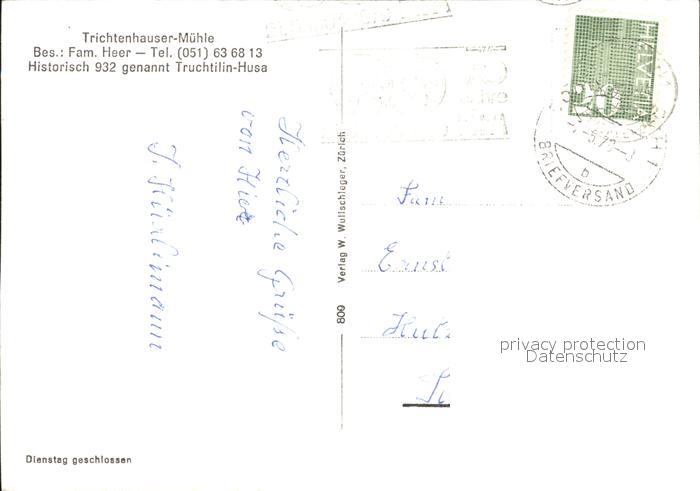 Trichtenhauser-Mühle
Bes.: Fam. Heer — Tel. (051) 63 68 13
Historisch 932 genannt Truchtilin-Husa
Herzliche Grüße
von Hier
J. Hürlimann
809 Verlag W. Wullschleger, Zürich
HELVETIA
20
BRIEFVERSAND
b
Fam
Ernst
privacy protection
Datenschutz
Dienstag geschlossen